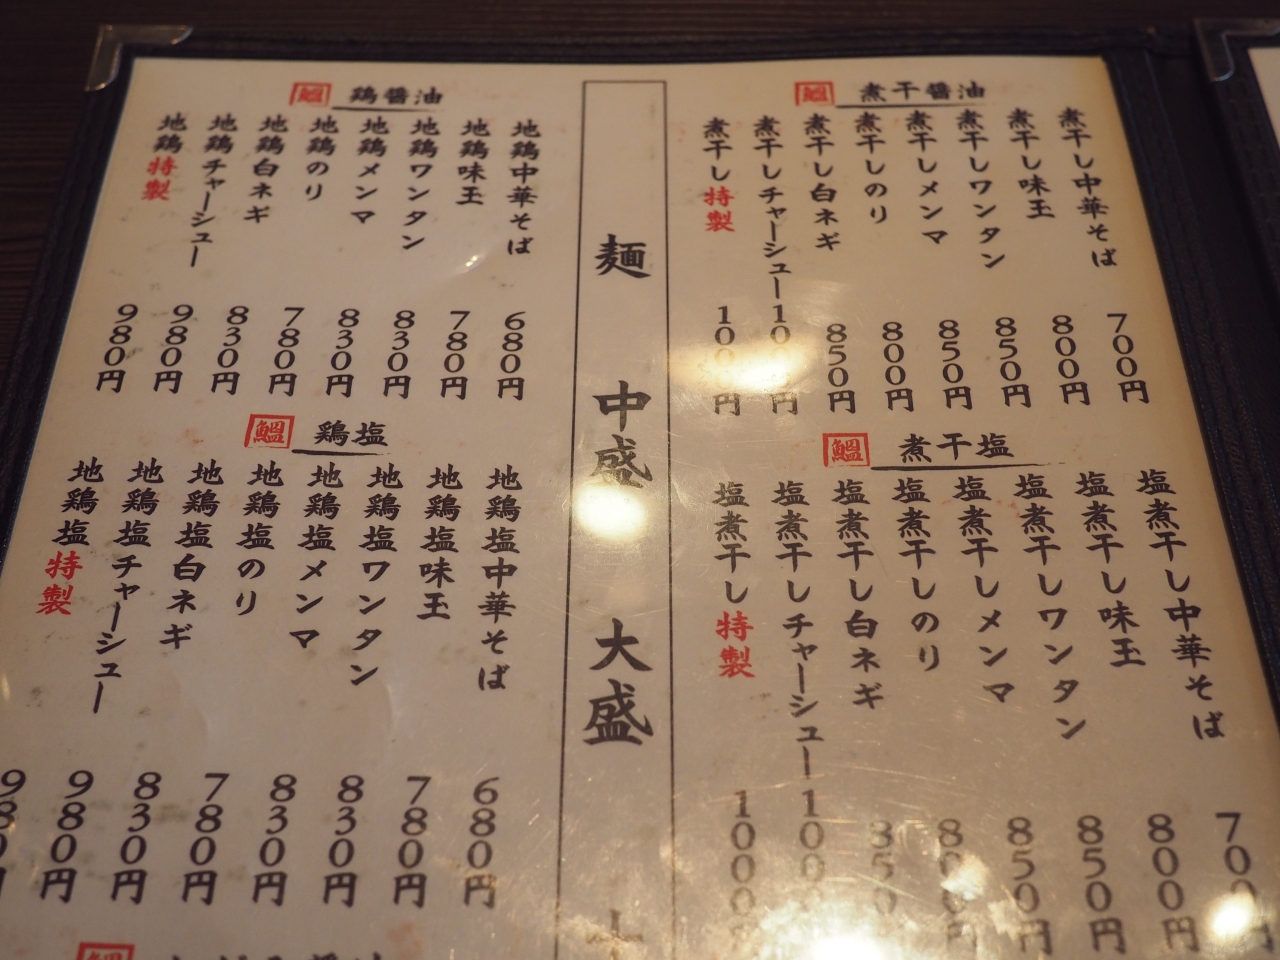 鰮 煮干醤油
煮干し中華そば 700円
煮干し味玉 800円
煮干しワンタン 850円
煮干しメンマ 850円
煮干しのり 800円
煮干し白ネギ 850円
煮干しチャーシュー 1000円
煮干し特製 1000円
鰮 煮干塩
塩煮干し中華そば 700円
塩煮干し味玉 800円
塩煮干しワンタン 850円
塩煮干しメンマ 850円
塩煮干しのり 800円
塩煮干し白ネギ 850円
塩煮干しチャーシュー 1000
塩煮干し特製 1000円
麺 中盛 大盛
鰮 鶏醤油
地鶏中華そば 680円
地鶏味玉 780円
地鶏ワンタン 830円
地鶏メンマ 830円
地鶏のり 780円
地鶏白ネギ 830円
地鶏チャーシュー 980円
地鶏特製 980円
鰮 鶏塩
地鶏塩中華そば 680円
地鶏塩味玉 780円
地鶏塩ワンタン 830円
地鶏塩メンマ 830円
地鶏塩のり 780円
地鶏塩白ネギ 830円
地鶏塩チャーシュー 980円
地鶏塩特製 980円